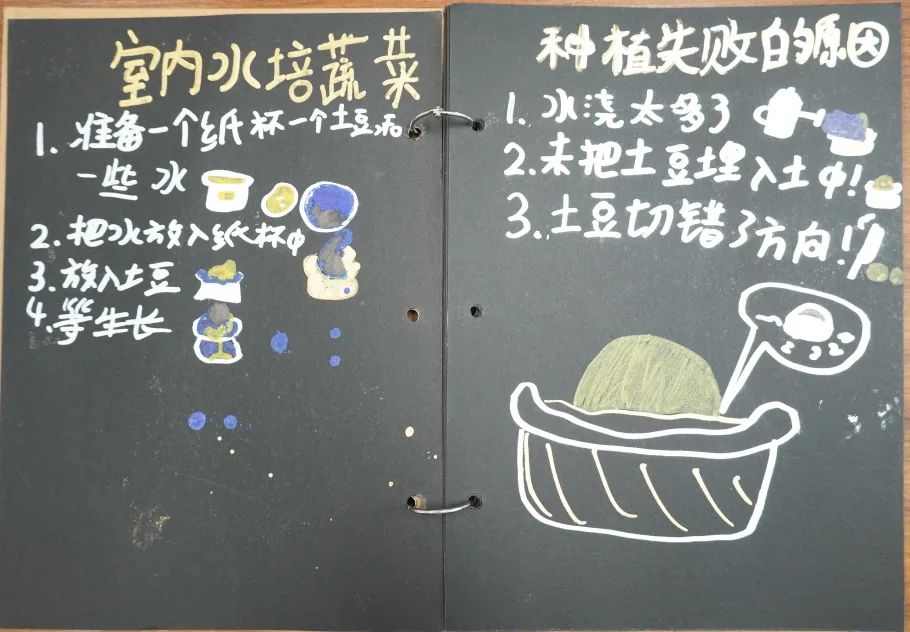 室内水培蔬菜
1. 准备一个纸杯一个土豆和
一些水
2. 把水放入纸杯中
3. 放入土豆
4. 等生长
种植失败的原因
1. 水浇太多了
2. 未把土豆埋入土中!
3. 土豆切错了方向!